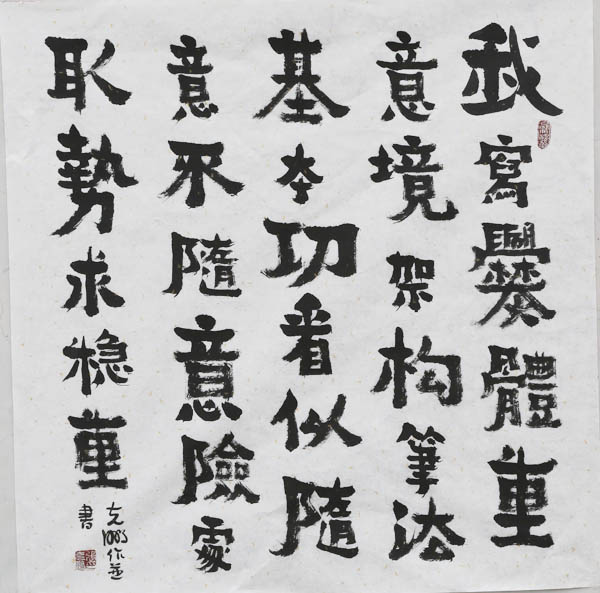 我寫爨體重
意境架构筆法
基本功看似隨
意不隨意險處
取勢求稳重
作並
書